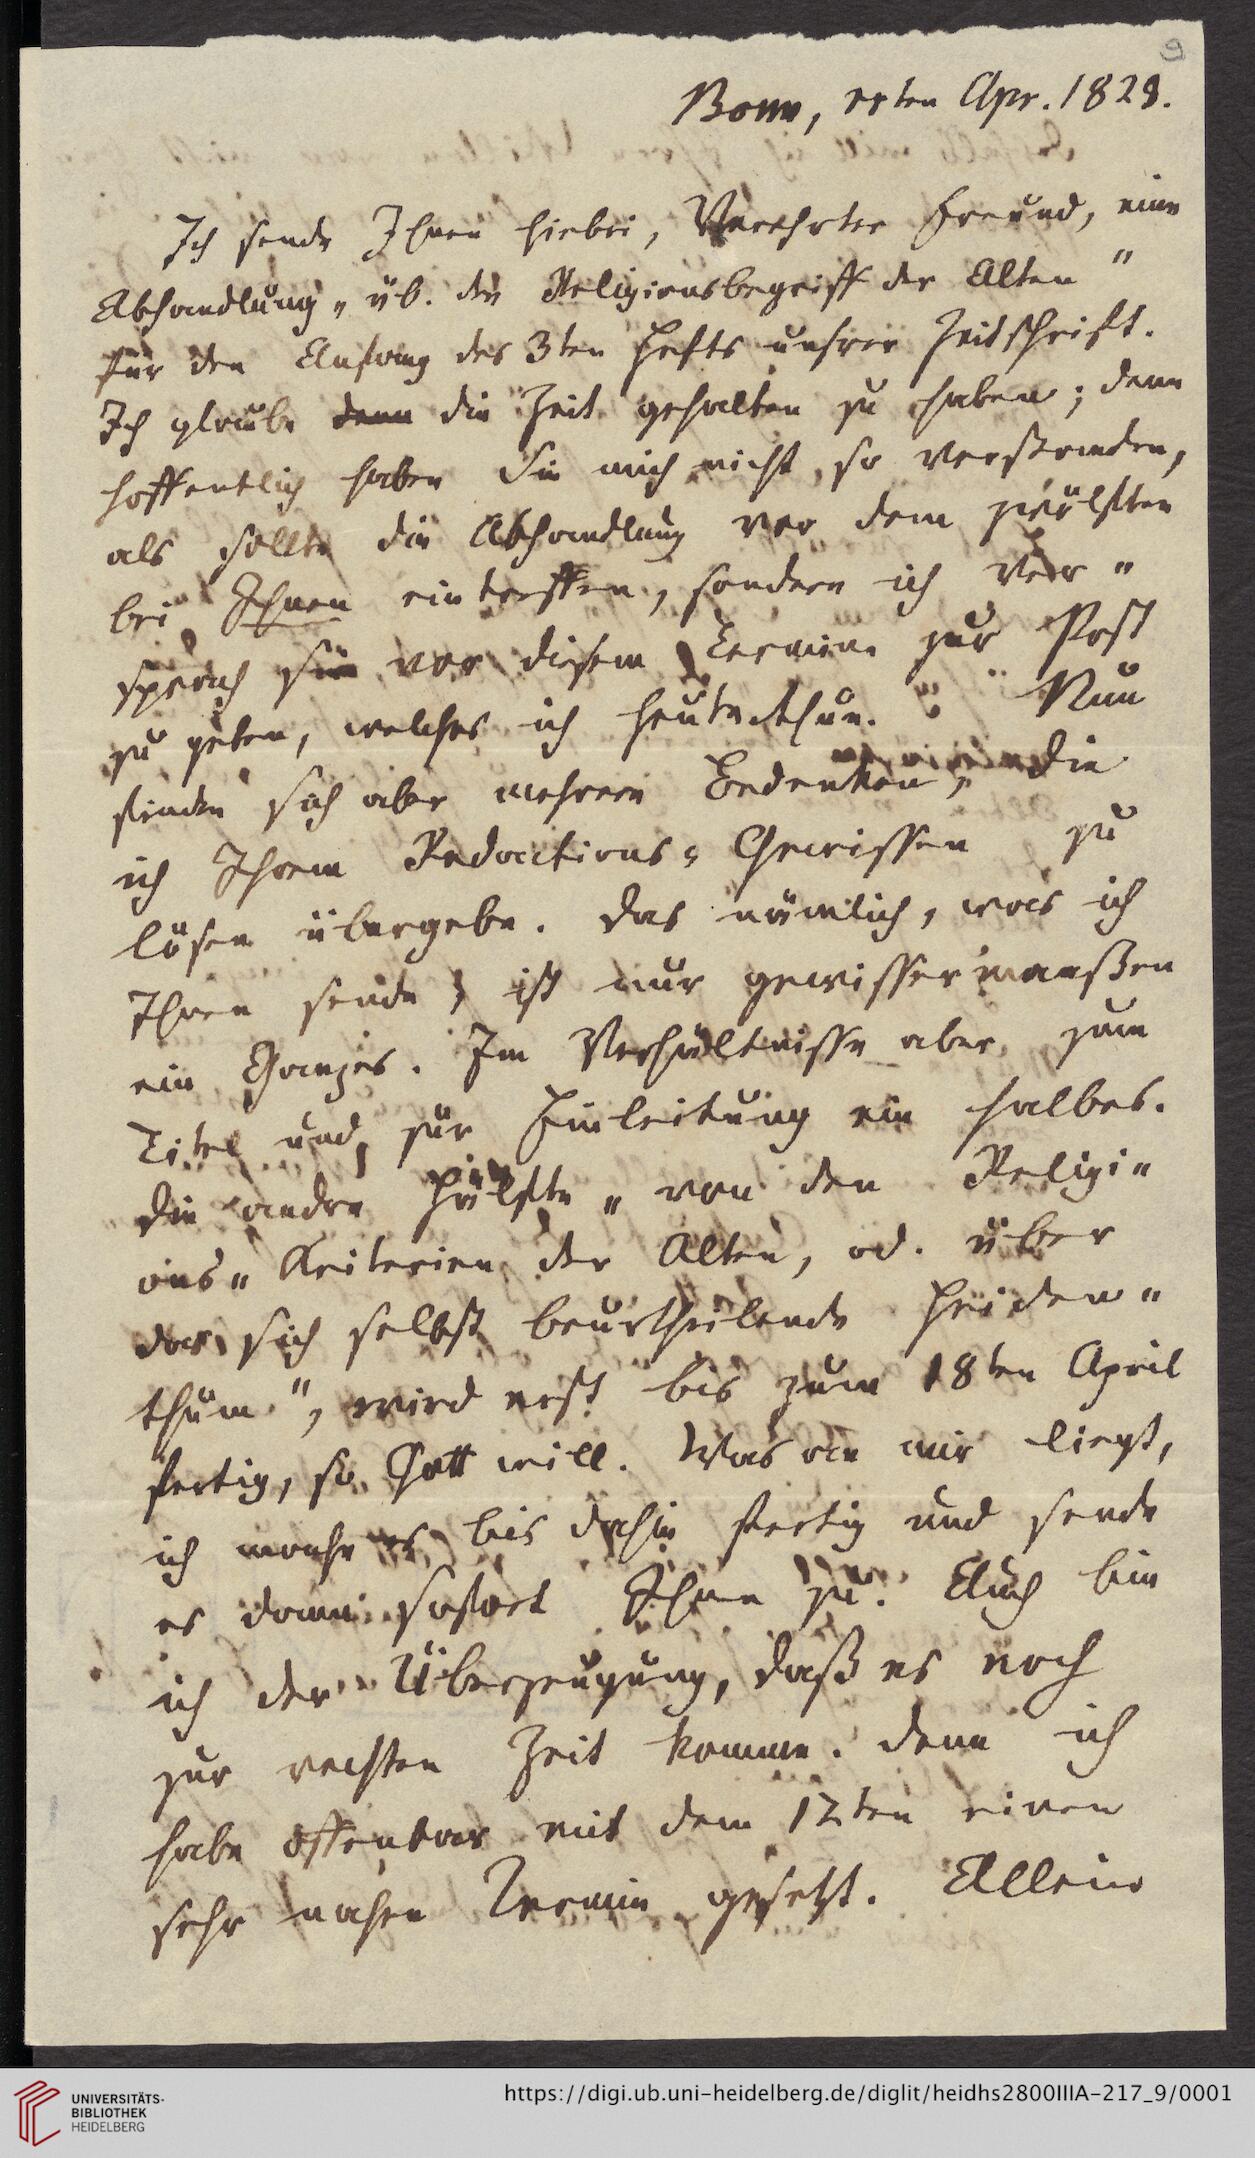 9
Bonn, 11ten Apr. 1828.
Ich sende Ihnen hiebei, Verehrter Freund, eine
Abhandlung „üb. den Religionsbegriff der Alten"
für den Anfang des 3ten Hefts unsrer Zeitschrift.
Ich glaube denn die Zeit gehalten zu haben; denn
hoffentlich haben Sie mich nicht so verstanden,
als sollte die Abhandlung vor dem zwölften
bei Ihnen eintreffen, sondern ich ver-
sprach sie vor diesem Termine zur Post
zu geben, welches ich heute thue. Nun
finden sich aber mehrere Bedenken, die
ich Ihrem Redactions-Gewissen zu
lösen übergebe. Das nämlich, was ich
Ihnen sende, ist nur gewissermaaßen
ein Ganzes. Im Verhältnisse aber zum
Titel und zur Einleitung ein halbes.
Die andre Hälfte „von den Religi-
ons-Kriterien der Alten, od. über
das sich selbst beurtheilende Heiden-
thum", wird erst bis zum 18ten April
fertig, so Gott will. Was an mir liegt,
ich mache es bis dahin fertig und sende
es dann sofort Ihnen zu. Auch bin
ich der Überzeugung, daß es noch
zur rechten Zeit komme. Denn ich
habe offenbar mit dem 12ten einen
sehr nahen Termin gesetzt. Allein
UNIVERSITÄTS-
BIBLIOTHEK
HEIDELBERG
https://digi.ub.uni-heidelberg.de/diglit/heidhs2800IIIA-217_9/0001